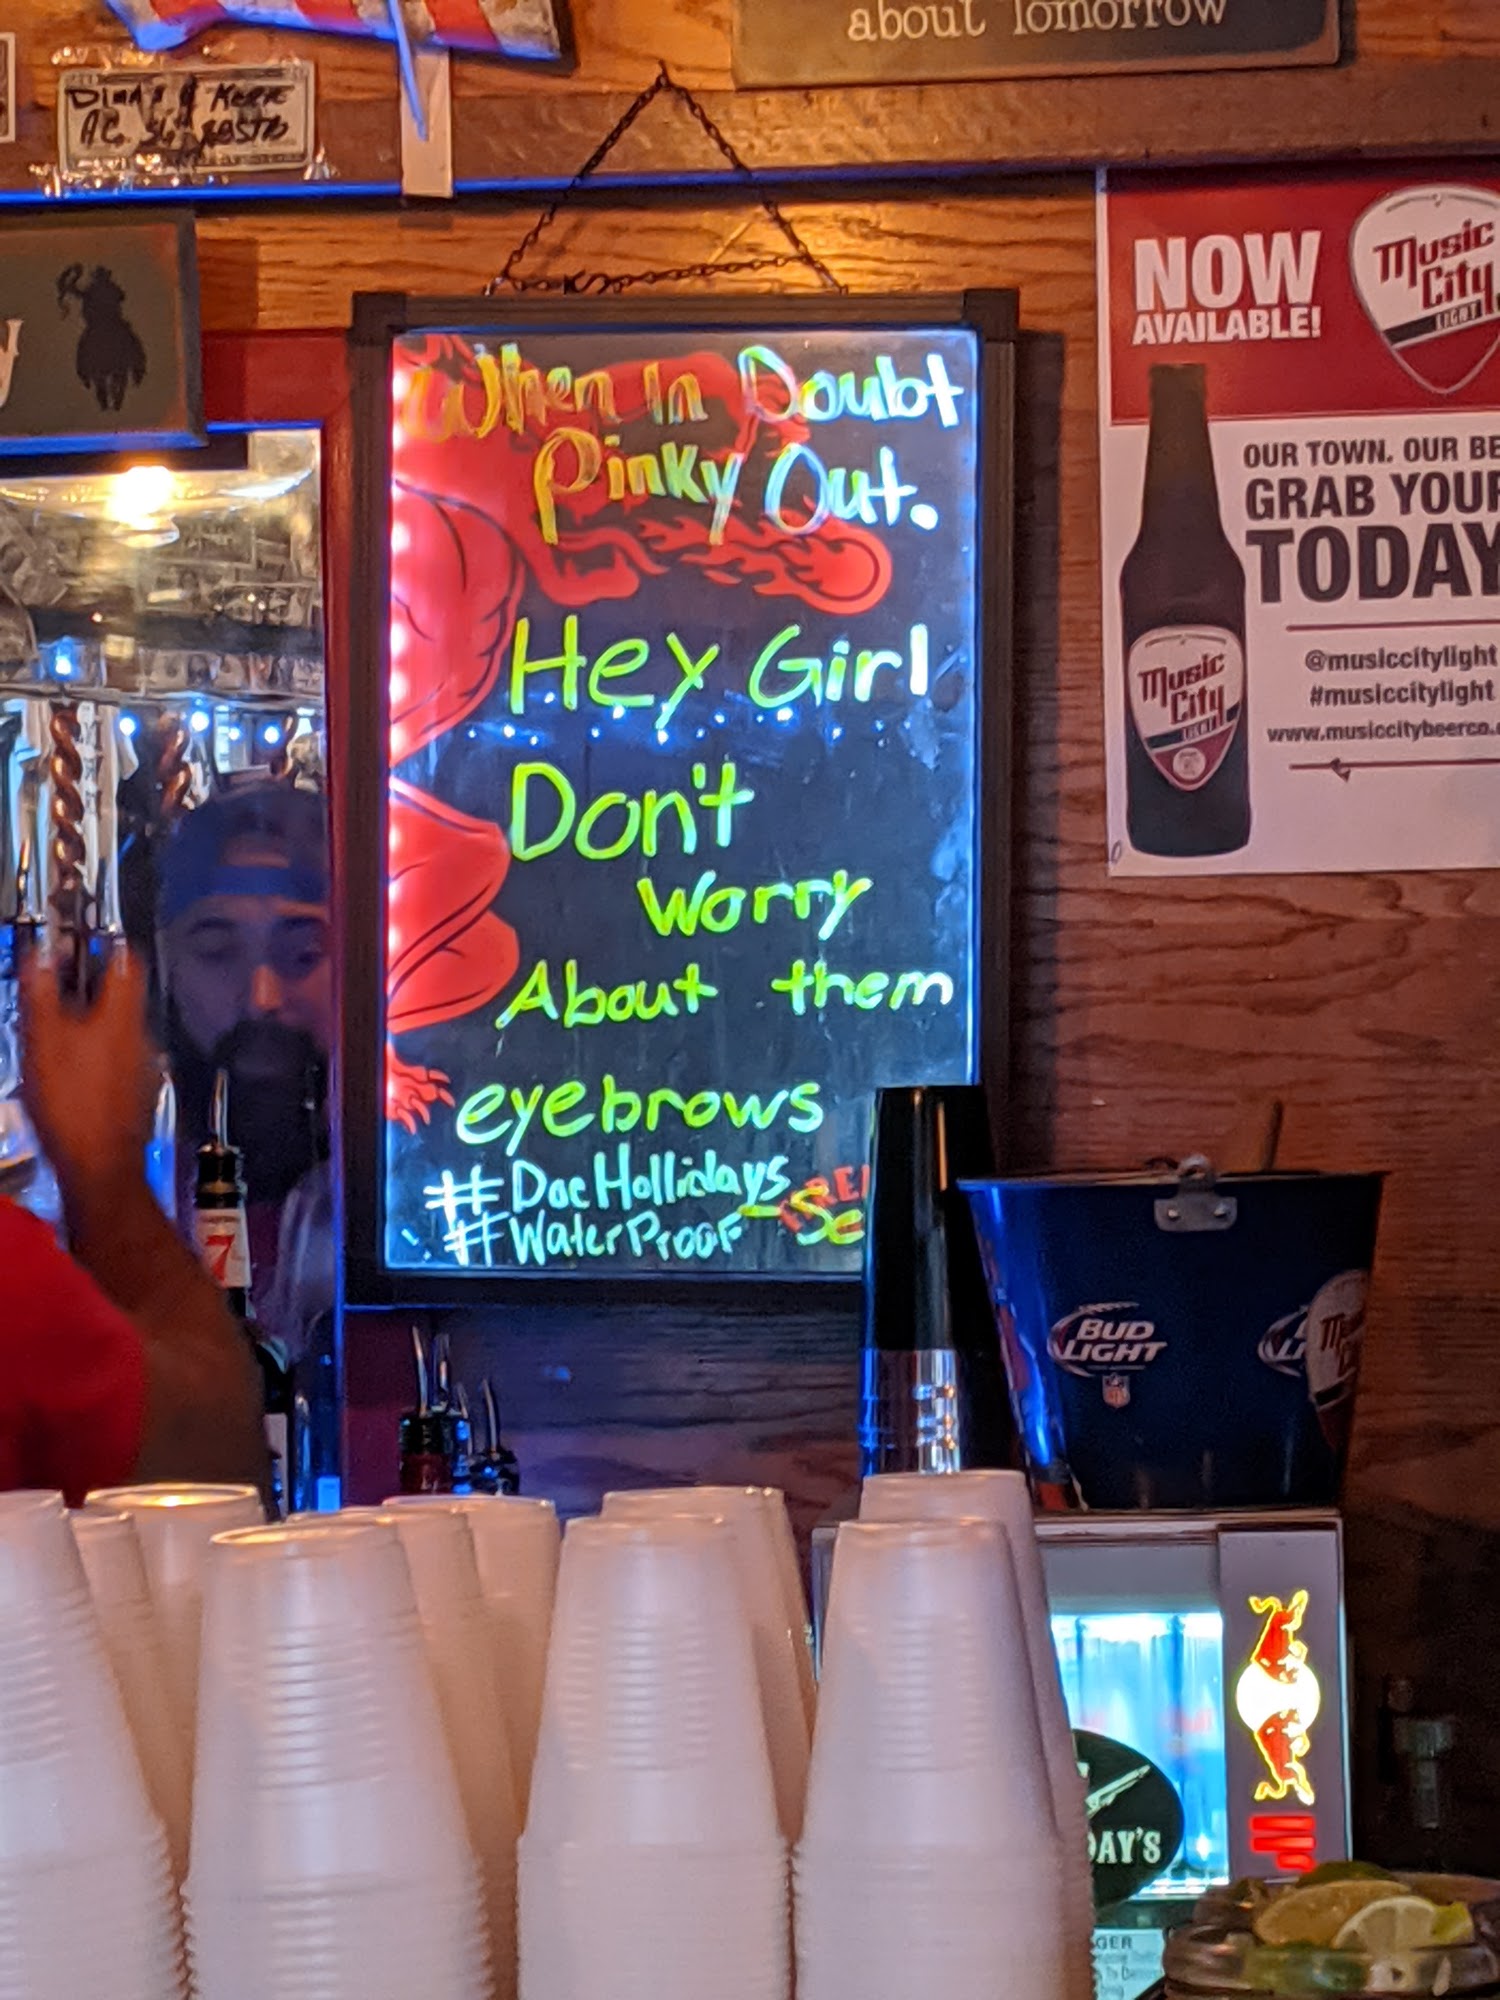 about Tomorrow
When In Doubt
Pinky Out.
Hey Girl
Don't
Worry
About them
eyebrows
#DocHollidays
#WaterProof
NOW
AVAILABLE!
Music
City
LIGHT
OUR TOWN. OUR BE
GRAB YOUR
TODAY
@musiccitylight
#musiccitylight
www.musiccitybeerco.
Music
City
LIGHT
7
BUD
LIGHT
NFL
DAY'S
GER